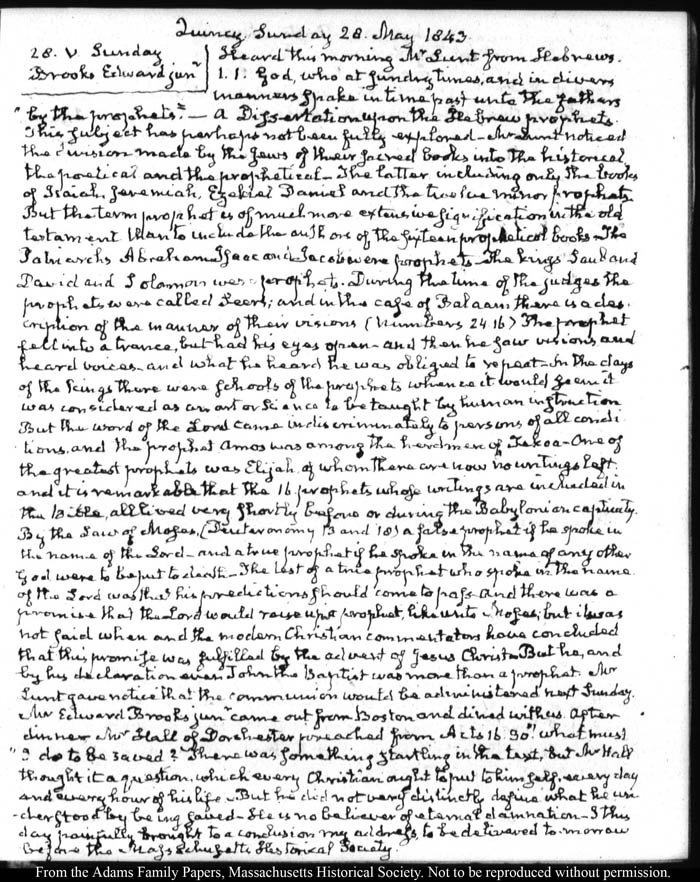 Quincy, Sunday 28. May 1843.
28. V. Sunday
Brooks Edward junr
Heard this morning Mr Lunt from Hebrews.
1. 1. God, who at sundry times, and in divers
manners spake in time past unto the fathers
"by the prophets" — A Dissertation upon the Hebrew prophets.
This subject has perhaps not been fully explored — Mr Lunt noticed
the division made by the Jews of their sacred books into the historical,
the poetical and the prophetical — The latter including only the books
of Isaiah, Jeremiah, Ezekiel Daniel and the twelve minor prophets.
But the term prophet is of much more extensive signification in the old
testament than to include the authors of the sixteen prophetical books — The
Patriarchs Abraham Isaac and Jacob were prophets — The Kings Saul and
David and Solomon were prophets. During the time of the judges the
prophets were called Seers; and in the case of Balaam there is a des-
cription of the manner of their visions (Numbers 24 16) The prophet
fell into a trance, but had his eyes open — and then he saw visions, and
heard voices — and what he heard he was obliged to repeat — In the days
of the Kings there were schools of the prophets whence it would seem it
was considered as an art or Science to be taught by human instruction
But the word of the Lord came indiscriminately to persons of all condi
tions, and the prophet Amos was among the herdmen of Tekoa — One of
the greatest prophets was Elijah, of whom there are now no writings left.
and it is remarkable that the 16 prophets whose writings are included in
the Bible, all lived very shortly before or during the Babylonian captivity.
By the Law of Moses, (Deuteronomy 13 and 18) a false prophet if he spoke in
the name of the Lord — and a true prophet if he spoke in the name of any other
God were to be put to death — The test of a true prophet who spoke in the name
of the Lord was that his predictions should come to pass and there was a
promise that the Lord would raise up a prophet, like unto Moses; but it was
not said when and the modern Christian commentators have concluded
that this promise was fulfilled by the advent of Jesus Christ — But he, and
by his declaration even John the Baptist was more than a prophet. Mr
Lunt gave notice that the communion would be administered next Sunday.
Mr Edward Brooks junr came out from Boston and dined with us. After
dinner Mr Hall of Dorchester preached from Acts 16. 30. "what must
"I do to be saved?" There was something startling in the text, but Mr Hall
thought it a question, which every Christian ought to put to himself, every day
and every hour of his life — But he did not very distinctly define what he un-
-derstood by being saved — He is no believer of eternal damnation — I this
day painfully brought to a conclusion my address, to be delivered to-morrow
before the Massachusetts Historical Society.
From the Adams Family Papers, Massachusetts Historical Society. Not to be reproduced without permission.